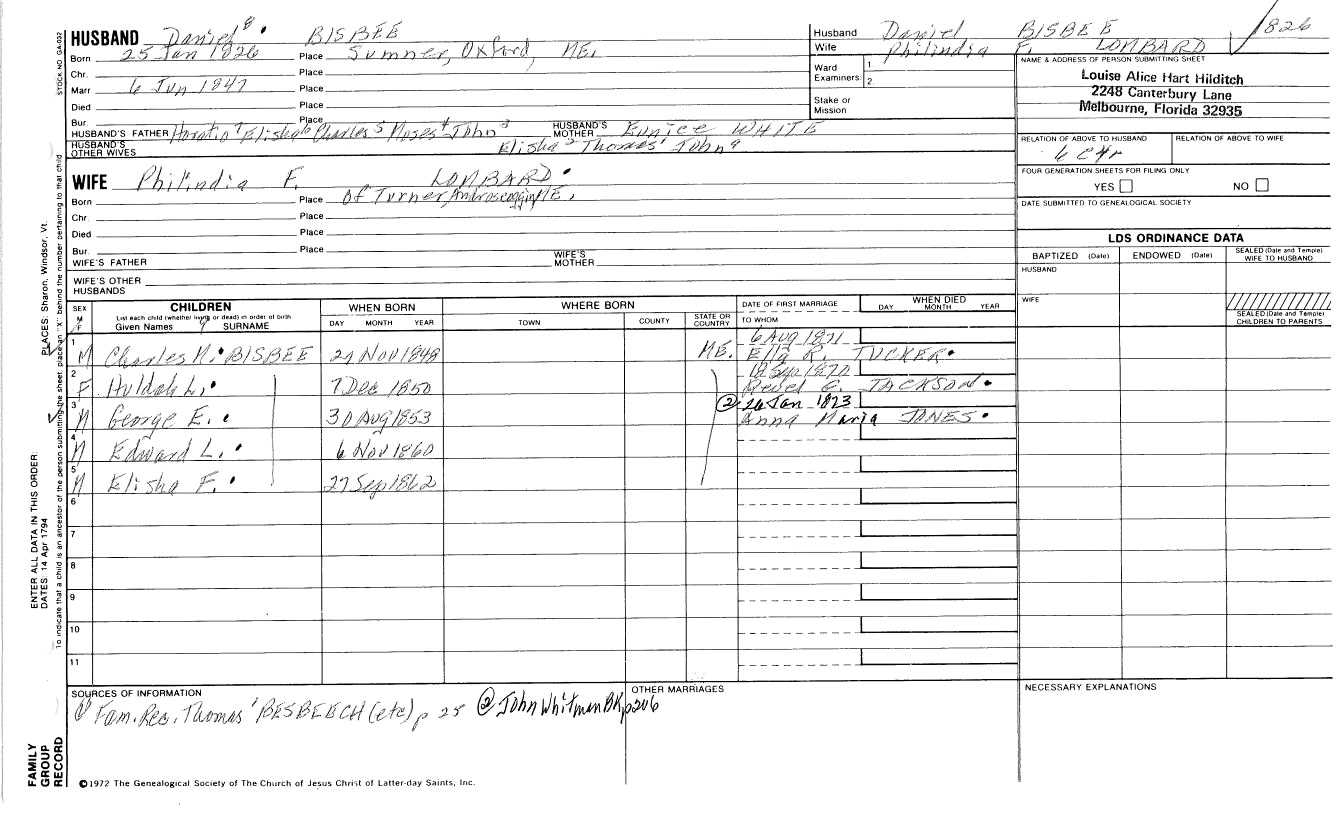 HUSBAND Daniel⁸ BISBEE
Born 25 Jan 1826 Place Sumner, Oxford, ME.
Chr. Place
Marr 6 Jun 1847 Place
Died Place
Bur. Place
HUSBAND'S FATHER Horatio⁷ Elisha⁶ Charles⁵ Moses⁴ John³ HUSBAND'S MOTHER Eunice WHITE
HUSBAND'S OTHER WIVES Elisha² Thomas¹ John
Husband Daniel BISBEE 1826
Wife Philindia F. LOMBARD
Ward 1
Examiners 2
Stake or Mission
NAME & ADDRESS OF PERSON SUBMITTING SHEET
Louise Alice Hart Hilditch
2248 Canterbury Lane
Melbourne, Florida 32935
RELATION OF ABOVE TO HUSBAND RELATION OF ABOVE TO WIFE
FOUR GENERATION SHEETS FOR FILING ONLY
YES NO
DATE SUBMITTED TO GENEALOGICAL SOCIETY
WIFE Philindia F. LOMBARD
Born Place of Turner, Androscoggin, ME.
Chr. Place
Died Place
Bur. Place
WIFE'S FATHER WIFE'S MOTHER
WIFE'S OTHER HUSBANDS
LDS ORDINANCE DATA
BAPTIZED (Date) ENDOWED (Date) SEALED (Date and Temple) WIFE TO HUSBAND
HUSBAND
WIFE
SEALED (Date and Temple) CHILDREN TO PARENTS
SEX M F CHILDREN WHEN BORN WHERE BORN DATE OF FIRST MARRIAGE WHEN DIED
List each child (whether living or dead) in order of birth
Given Names SURNAME DAY MONTH YEAR TOWN COUNTY STATE OR COUNTRY TO WHOM DAY MONTH YEAR
1 M Charles M. BISBEE 27 Nov 1848 ME. 6 Aug 1871
Ella R. TUCKER
2 F Huldah L. 7 Dec 1850 18 Sep 1870
Revel C. JACKSON
3 M George E. 30 Aug 1853 ② 26 Jan 1873
Anna Maria JONES
4 M Edward L. 6 Nov 1860
5 M Elisha F. 27 Sep 1862
6
7
8
9
10
11
SOURCES OF INFORMATION
① Fam. Rec. Thomas¹ BESBEECH (etc) p 25 ② John Whitman BK, p206
OTHER MARRIAGES
NECESSARY EXPLANATIONS
©1972 The Genealogical Society of The Church of Jesus Christ of Latter-day Saints, Inc.
STOCK NO. GA-032
PLACES: Sharon, Windsor, Vt.
ENTER ALL DATA IN THIS ORDER
DATES: 14 Apr 1794
To indicate that a child is an ancestor of the person submitting the sheet, place an "X" behind the number pertaining to that child
FAMILY GROUP RECORD